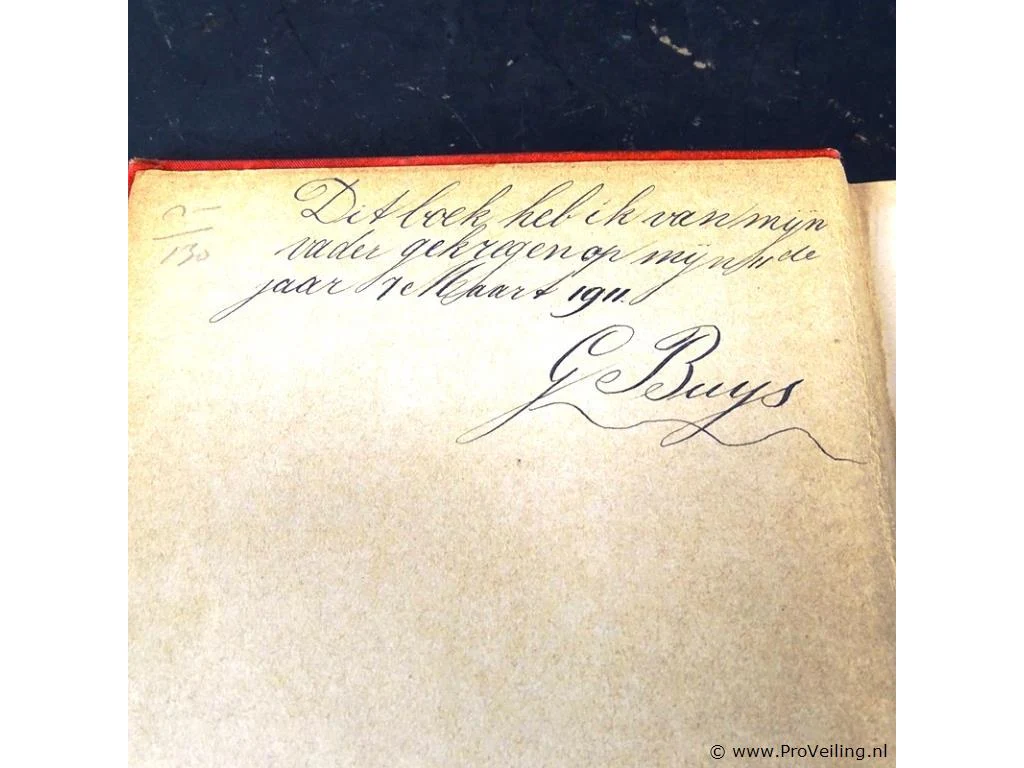 Dit boek heb ik van mijn
vader gekregen op mijn 11de
jaar 7 Maart 1911.
G Buys
130
© www.ProVeiling.nl